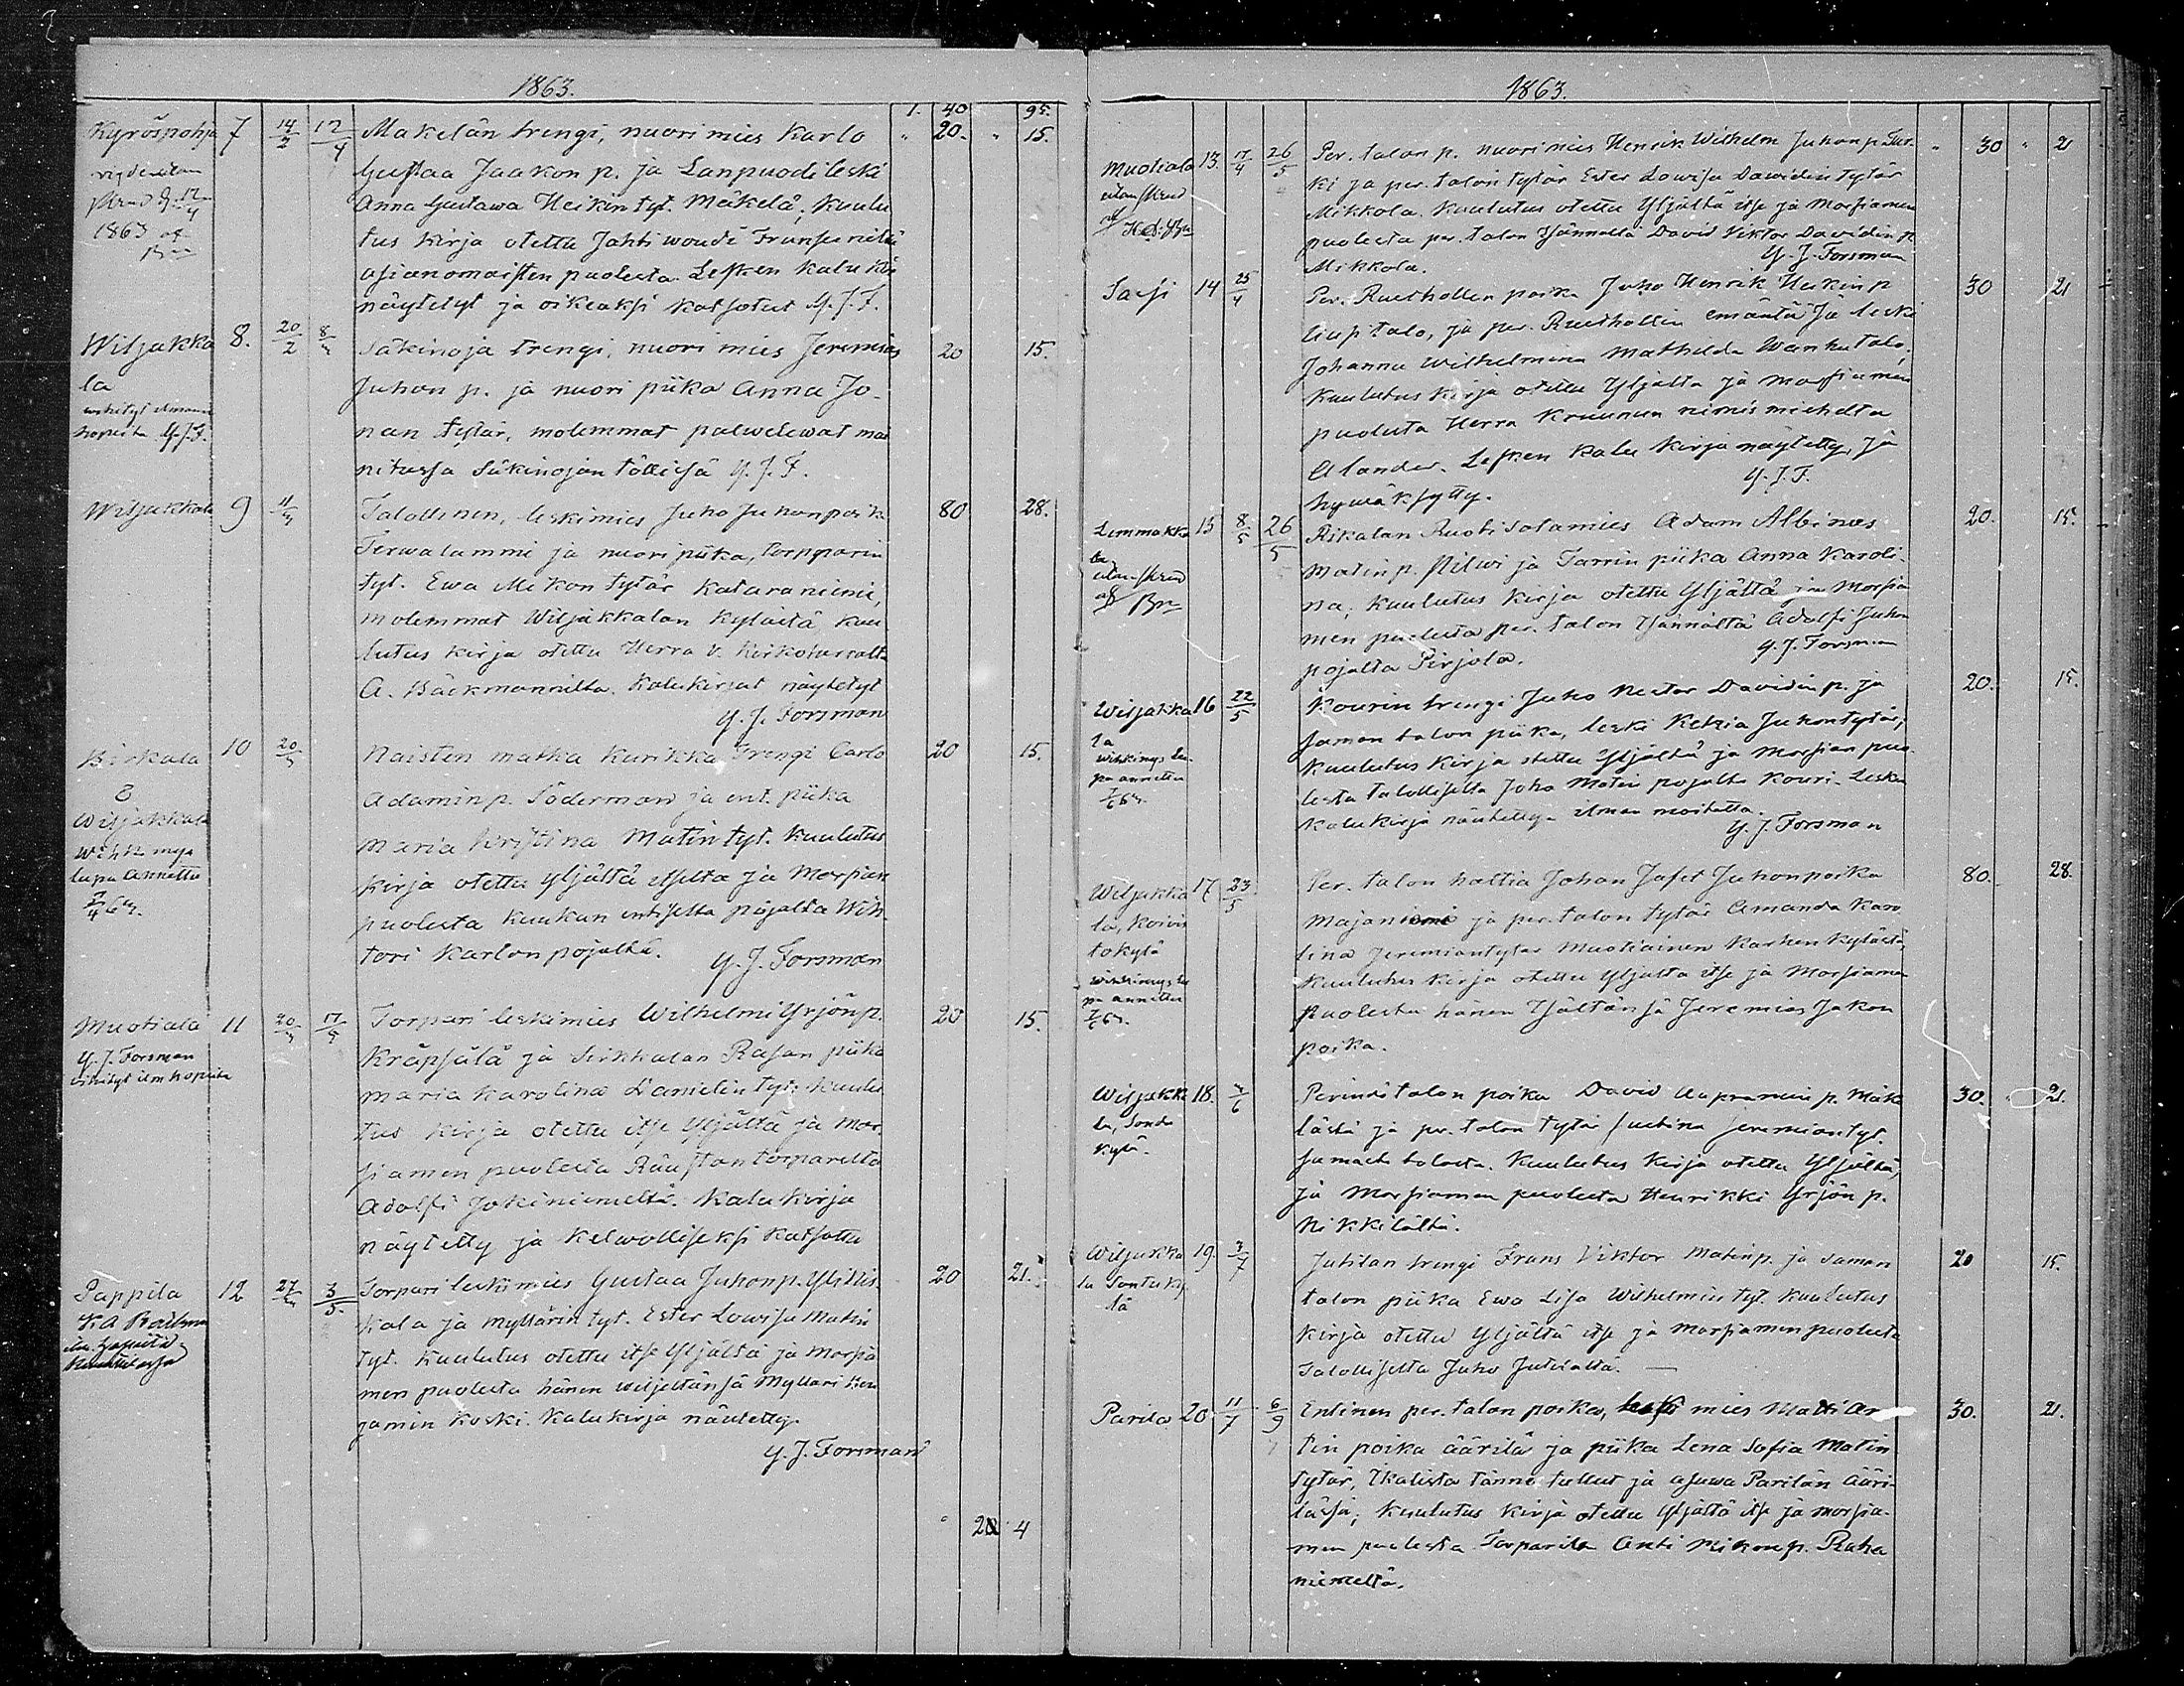 1863.
1. 40 95.
Kyröspohja 7 14/2 12/4 Makelän trengi, nuori mies Karlo " 20. " 15.
Gustaa Jaakon p. ja Lanpuodi leski
Anna Gustawa Heikin tyt. Mäkelä; kuulu
1863 af tus kirja otettu Jahti woudi
asianomaisten puolesta. Lesken kalu kir
näytetyt ja oikeaksi katsotut Y. J. F.
Wiljakka 8. 20/2 Säkinoja trengi, nuori mies Jeremias 20 15.
la Juhon p. ja nuori piika Anna Jo-
nan tytär, molemmat palwelewat mai
Y. J. F. nitussa Säkinojan töllissä Y. J. F.
Wiljakkala 9 Talollinen, leskimies Juho Juhonpoika 80 28.
Terwalammi ja nuori piika, torpparin
tyt. Ewa Mikon tytär Kataraniemi,
molemmat Wiljakkalan kylästä, kuu
lutus kirja otettu Herra v. Kirkoherralta
A. Bäckmannilta. Kalukirjat näytetyt
Y. J. Forsman
Birkala 10 Naisten matka Kurikka Trengi Carlo 20 15.
& Adamin p. Söderman ja ent. piika
Wiljakkala Maria Kristina Matin tyt. Kuulutus
lupa annettu kirja otettu Yljältä itseltä ja Morsian
puolesta Kuukan entiseltä pojalta Wih-
tori Karlon pojalta. Y. J. Forsman
Muotiala 11 Torpari leskimies Wilhelmi Yrjön p. 20 15.
Y. J. Forsman Kräpsälä ja Sirkkalan Rasan piika
wihityt ilm hopeita Maria Karolina Danielin tyt: kuulu
tus kirja otettu itse Yljältä ja Mor-
siamen puolesta torparilta
Adolfi Jokiniemeltä. Kalukirja
näytetty ja kelwolliseksi katsottu
Pappila 12 3/5 Torpari leskimies Gustaa Juhonp. Yliskis 20 21.
kala ja myllärin tyt. Ester Lowisa Matin
tyt. Kuulutus otettu itse Yljältä ja Morsia
men puolesta hänen weljeltänsä Myllari Ben
jamin Koski. Kalukirja näutetty.
Y. J. Forsman
4
1863.
Muotiala 13. 17/4 26/5 Per. talon p. nuori mies Henrik Wilhelm Juhon p. Tur- " 30 " 21
ki ja per. talon tytär Ester Lowisa Dawidin tytär
Mikkola. Kuulutus otettu Yljältä itse ja Morsiamen
puolesta per. talon Isännältä David Viktor Davidin p.
Mikkola. Y. J. Forsman
Sasi 14 25/4 Per. Rusthollin poika Juho Henrik Heikin p 30 21
talo, ja per. Rusthollin emäntä ja leski
Johanna Wilhelmina Mathilda Wanhatalo;
Kuulutus kirja otettu Yljältä ja Morsiamen
puolesta Herra Kruunun nimismieheltä
Alander. Lesken kalu kirja näytetty, ja
hywäksytty. Y. J. F.
15 8/5 26/5 Rikalan Ruoti sotamies Adam Albinus 20. 15.
Matin p. Pilwi ja Tarrin piika Anna Karoli-
na; kuulutus kirja otettu Yljältä ja Morsia
men puolesta per. talon Isännältä Adolfi Juhon
pojalta Pirjola. Y. J. Forsman
Wiljakka 16 22/5 Kourin trengi Juho Nestor Davidin p. ja 20. 15.
la saman talon piika, leski Ketzia Juhontytär;
kuulutus kirja otettu Yljältä ja Morsian puo-
pa annettu lesta talolliselta Juho Matin pojalta Kouri- Lesken
kalukirja näutetty ilman moitetta.
Y. J. Forsman
Wiljakka 17 23/5 Per. talon haltia Johan Jafet Juhonpoika 80. 28.
la, Koivis Majaniemi ja per. talon tytär Amanda Karo
tokylä lina Jeremiantytär Muotiainen Karhen kylästä,
wihkimys lu kuulutus kirja otettu Yljältä itse ja Morsiamen
pa annettu puolesta hänen Isältänsä Jeremias Jakon
poika.
Wiljakka 18. Perindö talon poika David Aapramin p. Mäke 30. 21.
la, Sonda lästä ja per. talon tytär Justina Jeremian tyt.
kylä. samasta talosta. Kuulutus kirja otettu Yljältä,
ja Morsiamen puolesta Henrikki Yrjön p.
Nikkilältä.
Wiljakka 19. 3/7 Jutilan trengi Frans Viktor Matinp. ja saman 20 15.
la Sontuky talon piika Ewa Lisa Wilhelmin tyt. Kuulutus
lä kirja otettu Yljältä itse ja Morsiamen puolesta
Talolliselta Juho Jutilalta.
Parila 20. 11/7 6/9 Entinen per. talon poika, leski mies Matti An 30. 21.
tin poika Äärilä ja piika Lena Sofia Matin
tytär, Ikalista tänne tullut ja asuwa Parilan Ääri-
lässä; kuulutus kirja otettu Yljältä itse ja Morsia-
men puolesta Torparilta Anti Mikon p. Raha
niemeltä.